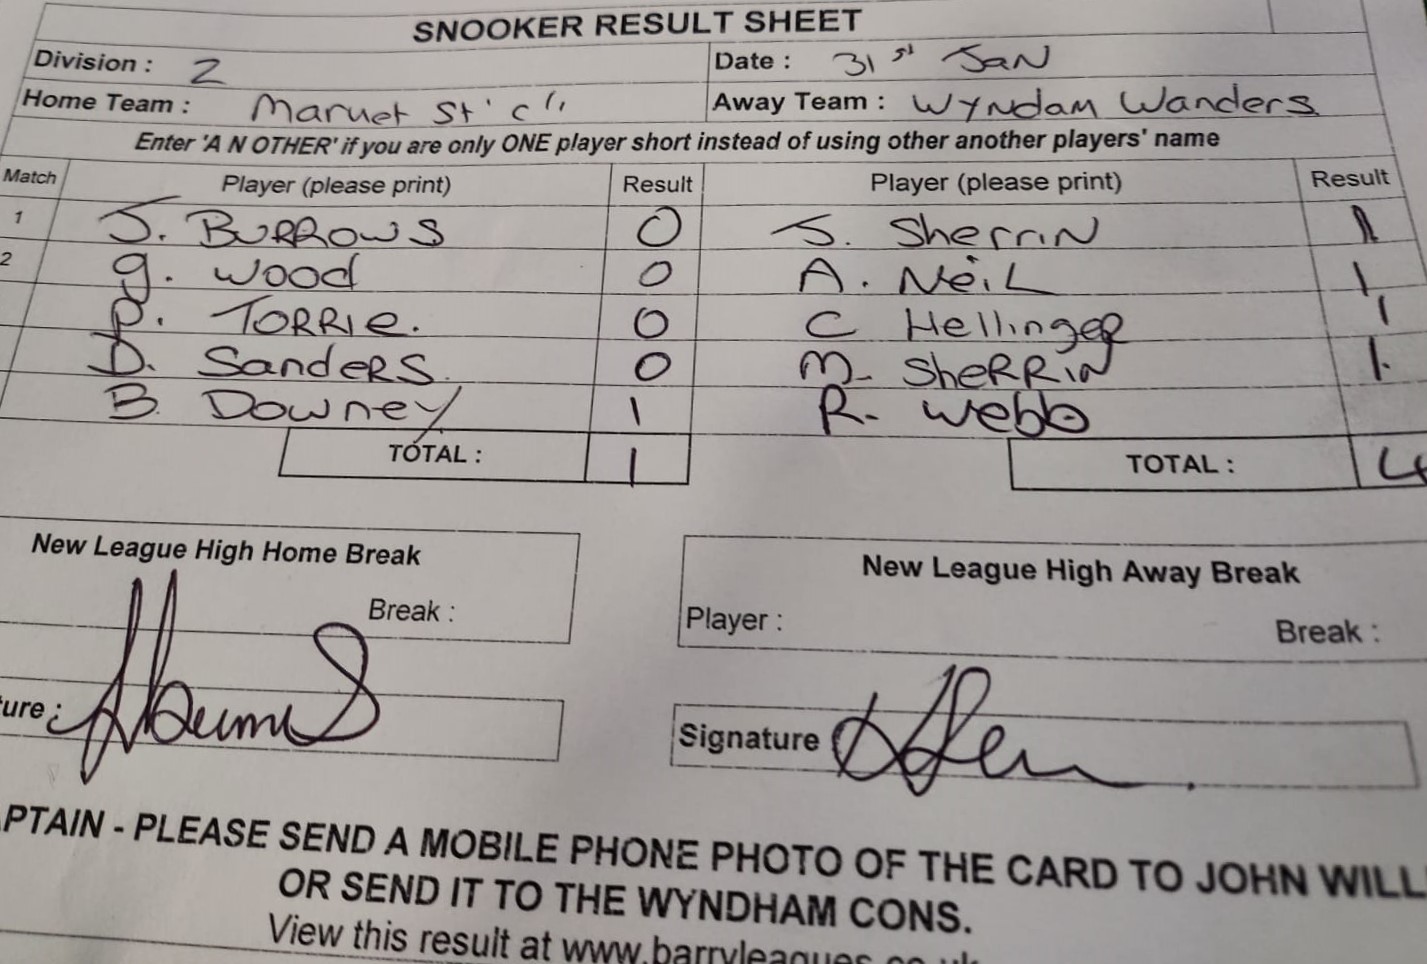 SNOOKER RESULT SHEET
Division : 2 Date : 31st JaN
Home Team : Maruet St' c'll Away Team : Wyndam Wanders
Enter 'A N OTHER' if you are only ONE player short instead of using other another players' name
Match Player (please print) Result Player (please print) Result
1 J. BURROWS 0 J. SherriN 1
2 g. wood 0 A. NeiL 1
P. TORRIe. 0 C Hellinger 1
D. SandeRS. 0 M. SheRRiN 1.
B. Downey 1 R. webb
TOTAL : 1 TOTAL : 4
New League High Home Break New League High Away Break
Break : Player : Break :
ure : Signature
PTAIN - PLEASE SEND A MOBILE PHONE PHOTO OF THE CARD TO JOHN WILL
OR SEND IT TO THE WYNDHAM CONS.
View this result at www.barryleagues.co.uk